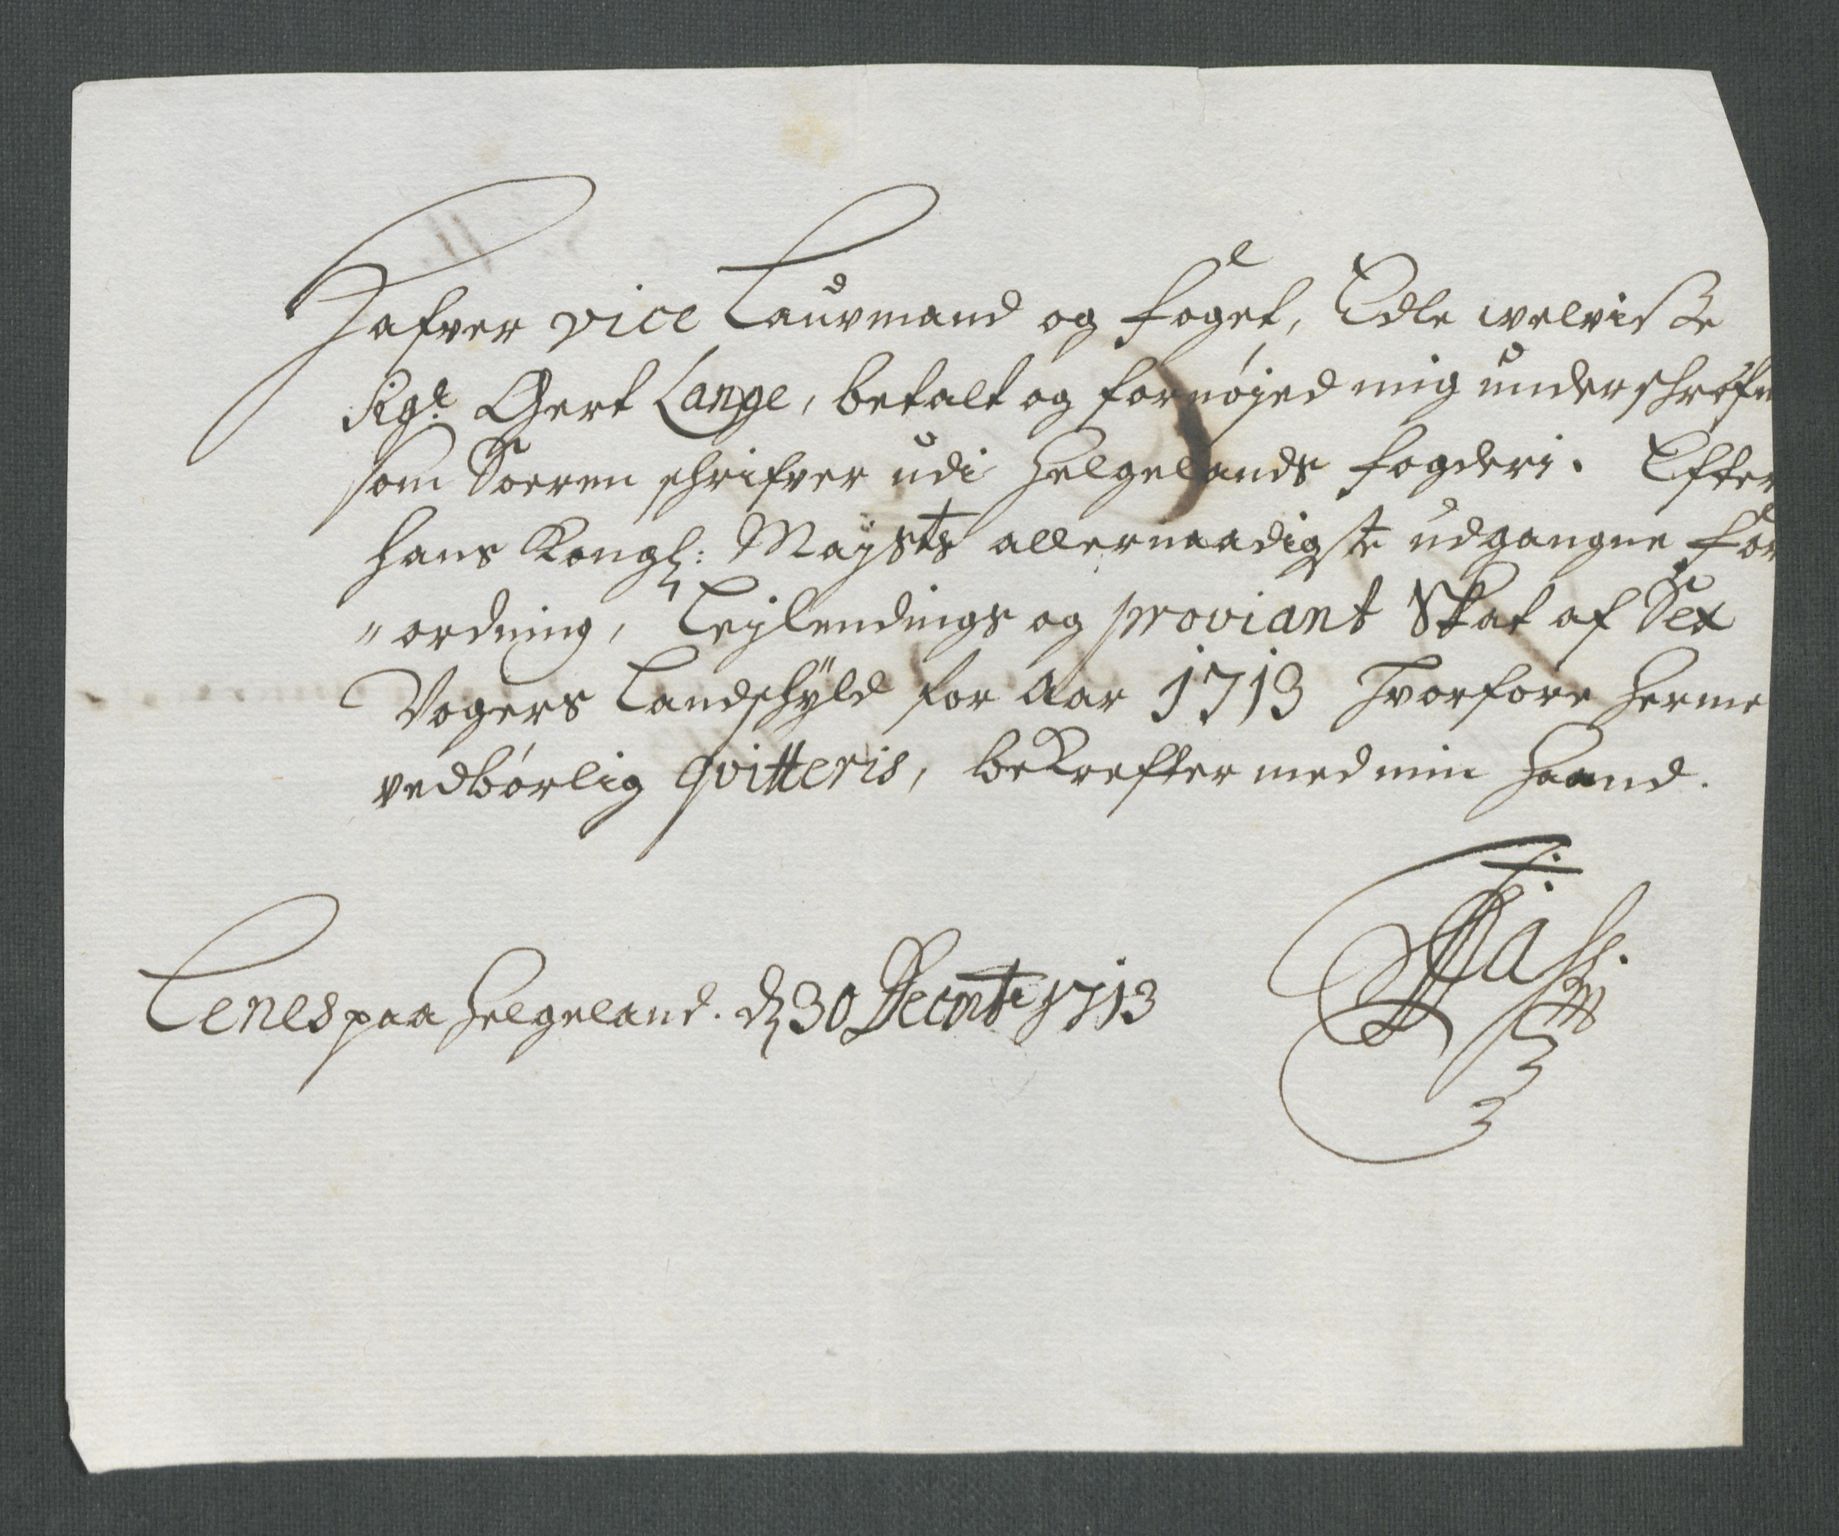 Hafver vice Lauvmand og foget, Edle welviße
Sigr. Gert Lange, betalt og fornøyed mig underschrefn
som Soeren schrifver udi Helgelands fogderi. Efter
Hans Kongl: Mayststs allernaadigste udgangne for
"ordning, Leylendings og proviant Skat af Sex
Vogers Landschÿld for Aar 1713 Hvorfore Herme
vedbørlig qvitteris, bekrefter med min Haand.
Tenes paa Helgeland. d 30 Decmbr 1713